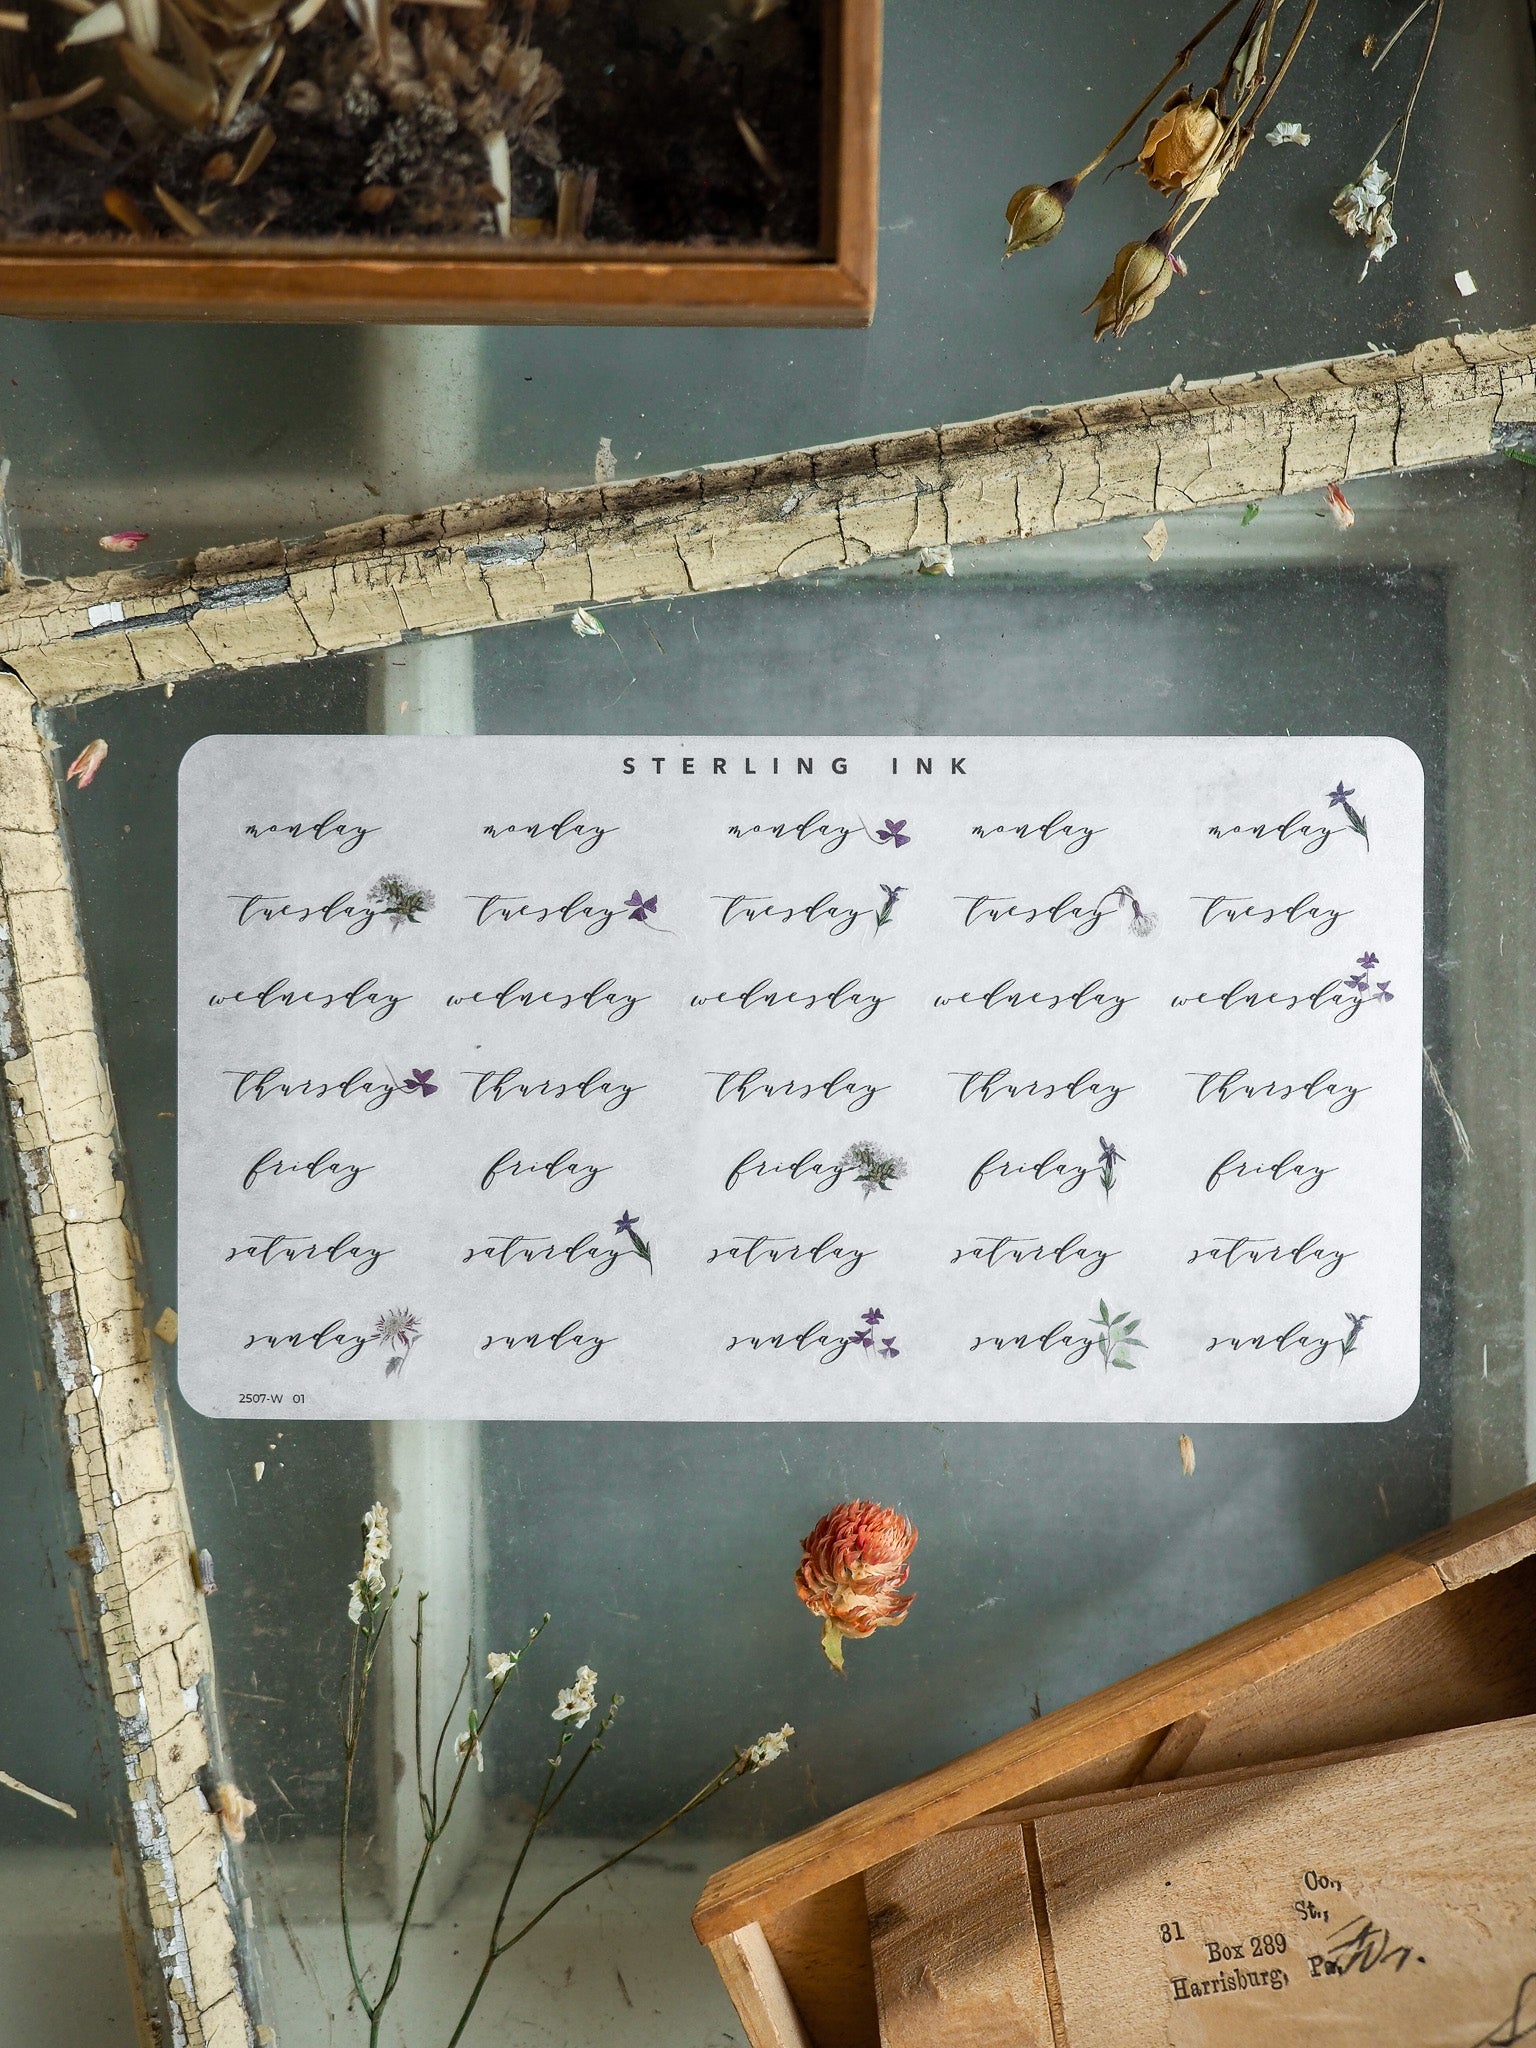 STERLING INK
monday monday monday monday monday
tuesday tuesday tuesday tuesday tuesday
wednesday wednesday wednesday wednesday wednesday
thursday thursday thursday thursday thursday
friday friday friday friday friday
saturday saturday saturday saturday saturday
sunday sunday sunday sunday sunday
2507-W 01
Co.,
St.,
31
Box 289
Harrisburg, Pa.